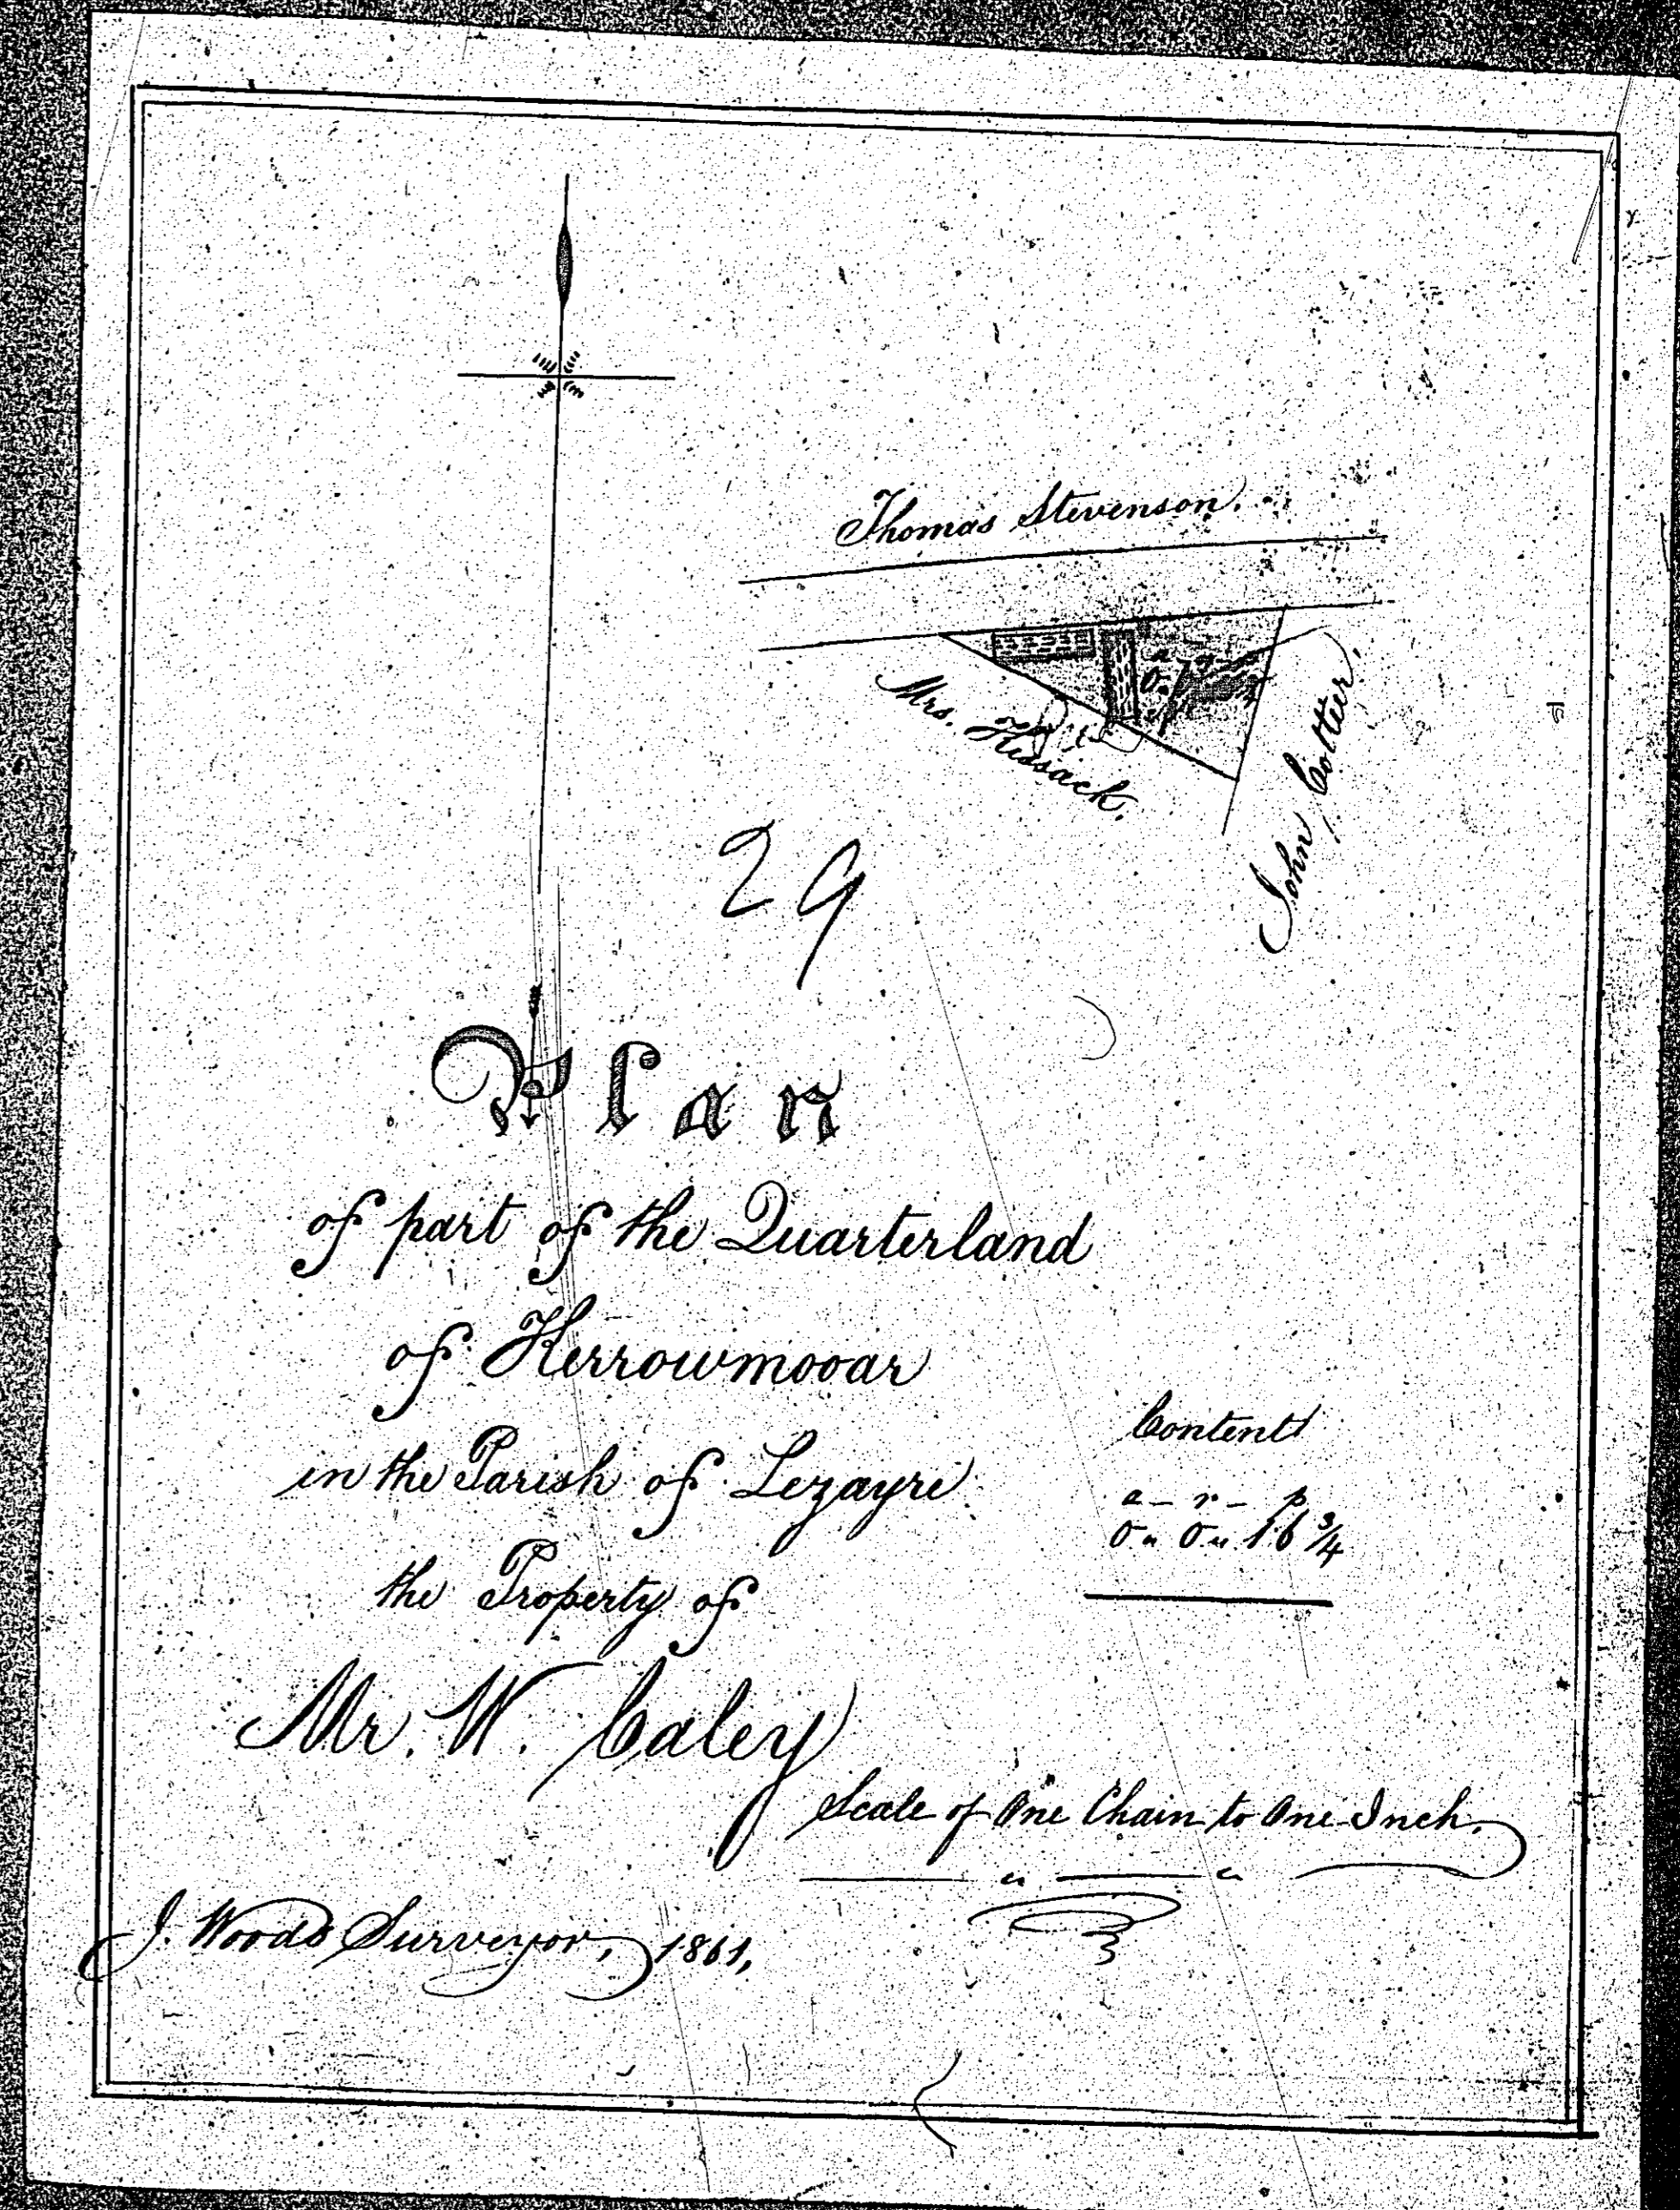 Thomas Stevenson.
Mrs. Kissack.
John Cottier.
29
Plan
of part of the Quarterland
of Kerrowmooar
in the Parish of Lezayre
the Property of
Mr. W. Caley
Content
a - r - p
0 " 0 " 16 3/4
Scale of One Chain to One Inch.
J. Woods Surveyor, 1861,